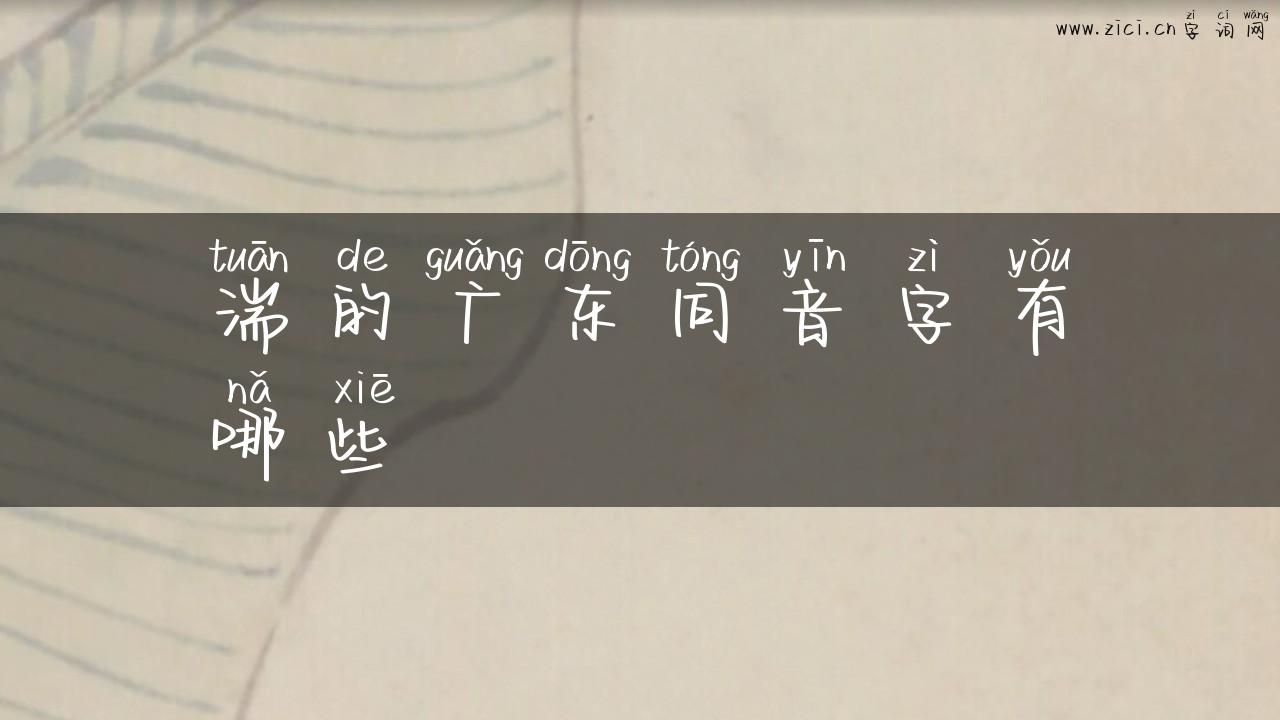 zì cí wǎng
www.zici.cn 字词网
tuān de guǎng dōng tóng yīn zì yǒu
湍的广东同音字有
nǎ xiē
哪些